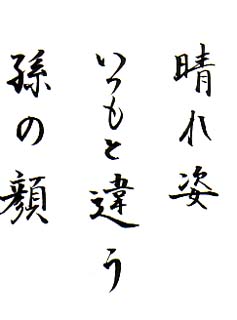 晴れ姿
いつもと違う
孫の顔